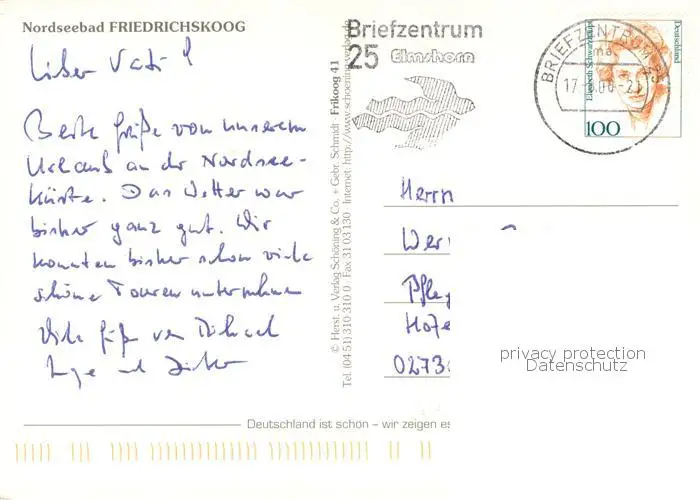 Nordseebad FRIEDRICHSKOOG
Lieber Vati!
Beste Grüße von unserem
Urlaub an der Nordsee-
küste. Das Wetter war
bisher ganz gut. Wir
konnten bisher schon viele
schöne Touren unternehmen
Viele Grüße von
Inge und
© Herst. u. Verlag Schöning & Co. + Gebr. Schmidt Frikoog 41
Tel. (04 51) 310 310 0 · Fax 31 03 130 Internet: http://www.schoening-verlag.de
Briefzentrum
25 Elmshorn
BRIEFZENTRUM 25
Elisabeth Schwarzhaupt
Deutschland
100
Herrn
Wer
Pfle
Hofe
0273
privacy protection
Datenschutz
Deutschland ist schön – wir zeigen es